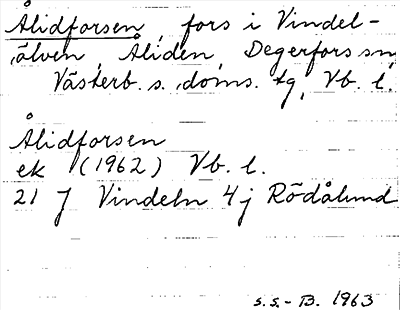 Ålidforsen, fors i Vindel-
älven, Åliden, Degerfors sn,
Västerb. s. doms. tg, Vb. l.
Ålidforsen
ek (1962) Vb. l.
21 J Vindeln 4j Rödålund
S.S.-B. 1963